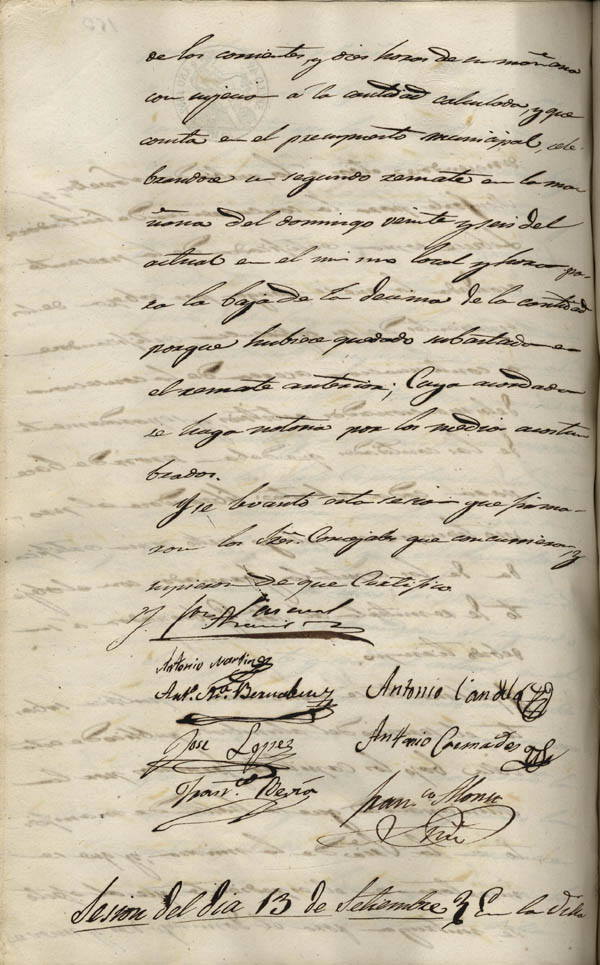 de los corrientes, y diez horas de su mañana
con sujecion á la cantidad calculada, y que
consta en el presupuesto municipal, cele-
brandose un segundo remate en la ma-
ñana del domingo veinte y seis del
actual en el mismo local y hora pa-
ra la baja de la decima de la cantidad
porque hubiese quedado subastada en
el remate anterior; Cuya acordada
se haga notoria por los medios acostum
brados.
Y se levantó esta sesion que firma-
ron los Sres. Concejales que concurrieron, y
supieron De que Certifico.
Jose Pascual
Antonio Martinez
Antº. Mª. Bernabeu
Antonio Candela
Jose Lopez
Antonio Cremades
Francº. Beviá
Franco. Alonso
Sesion del dia 13 de Setiembre } En la Villa